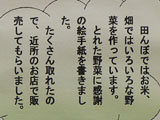 田んぼではお米、
畑ではいろいろな野
菜を作っています。
とれた野菜に感謝
の絵手紙を書きまし
た。
たくさん取れたの
で、近所のお店で販
売してもらいました。